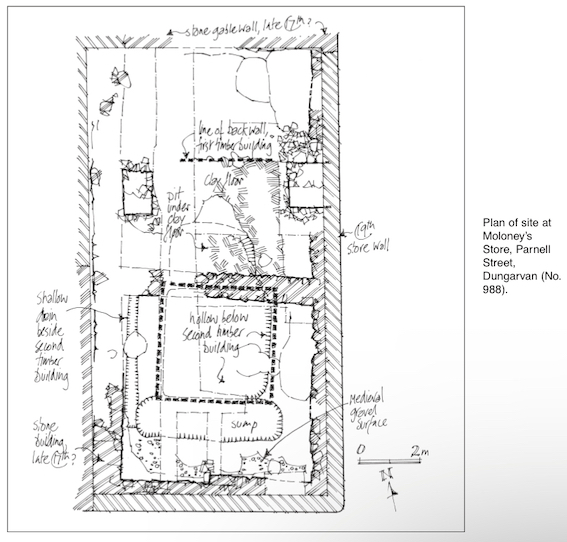 stone gable wall, late 17th?
line of back wall,
first timber building
clay floor
pit
under
clay
floor
19th
store wall
shallow
drain
beside
second
timber
building
hollow below
second timber
building
medieval
gravel
surface
sump
stone
building,
late 17th?
0 2m
N
Plan of site at
Moloney's
Store, Parnell
Street,
Dungarvan (No.
988).